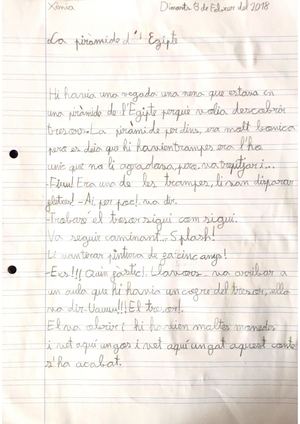 Xènia Dimarts 8 de Febrer del 2018
La piràmide d'Egipte
Hi havia una vegada una nena que estava en
una piràmide de l'Egipte perquè volia descobrir
tresors. La piràmide per dins, era molt bonica
però es deia que hi havien trampes era l'ho
unic que no li agradava però va trepitjar i...
-Fiuu! Era una de les trampes, li van disparar
fletxes! -Ai per poc! va dir.
-Trobaré el tresor sigui com sigui.
Va seguir caminant... Splash!
Li van tirar pintura de fa cinc anys!
-Ecs!!! Quin fàstic!. Llavors va arribar a
un aula que hi havia un cofre del tresor, ella
va dir-Uauuu!!! El tresor!.
El va obrir i hi havien moltes monedes
i vet aquí un gos i vet aquí un gat aquest conte
s'ha acabat.